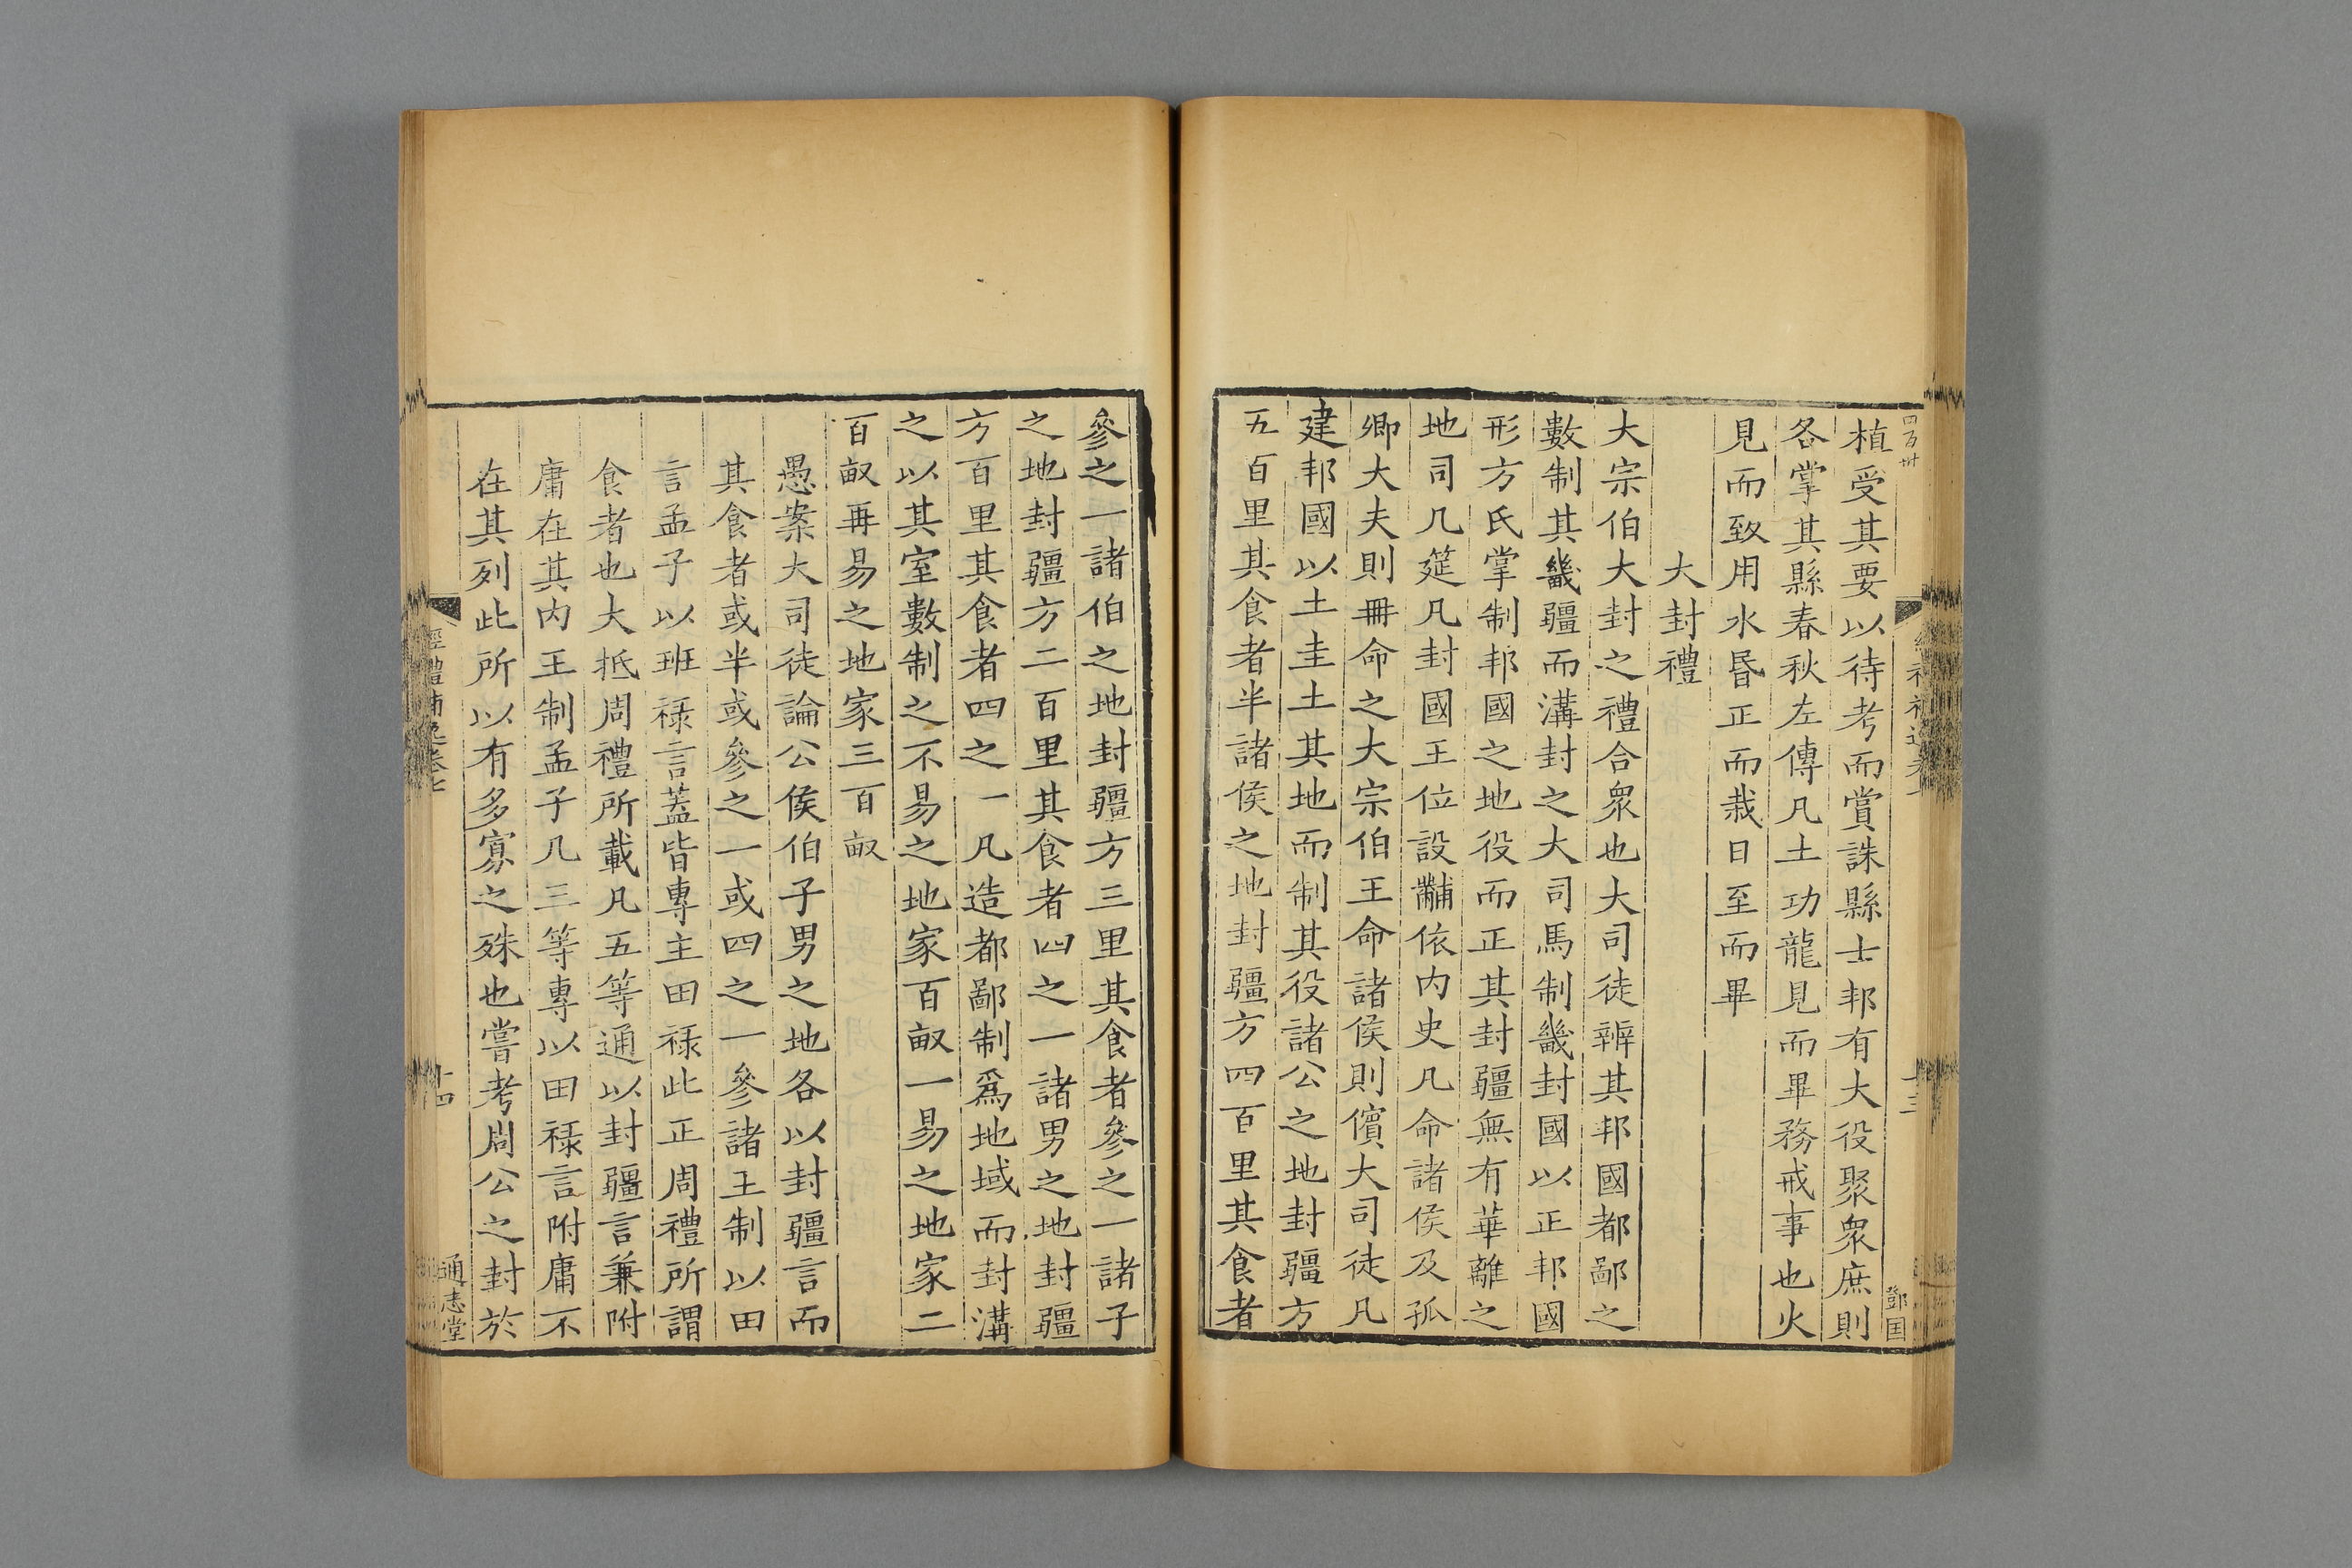 四百卅
十三
鄧国
植受其要以待考而賞誅縣士邦有大役聚衆庶則
各掌其縣春秋左傳凡土功龍見而畢務戒事也火
見而致用水昏正而栽日至而畢
大封禮
大宗伯大封之禮合衆也大司徒辨其邦國都鄙之
數制其畿疆而溝封之大司馬制畿封國以正邦國
形方氏掌制邦國之地役而正其封疆無有華離之
地司几筵凡封國王位設黼依内史凡命諸侯及孤
卿大夫則冊命之大宗伯王命諸侯則儐大司徒凡
建邦國以土圭土其地而制其役諸公之地封疆方
五百里其食者半諸侯之地封疆方四百里其食者
參之一諸伯之地封疆方三里其食者參之一諸子
之地封疆方二百里其食者四之一諸男之地封疆
方百里其食者四之一凡造都鄙制爲地域而封溝
之以其室數制之不易之地家百畝一易之地家二
百畝再易之地家三百畝
愚案大司徒論公侯伯子男之地各以封疆言而
其食者或半或參之一或四之一參諸王制以田
言孟子以班禄言蓋皆專主田禄此正周禮所謂
食者也大抵周禮所載凡五等通以封疆言兼附
庸在其内王制孟子凡三等專以田禄言附庸不
在其列此所以有多寡之殊也嘗考周公之封於
經禮補逸卷七
十四
通志堂